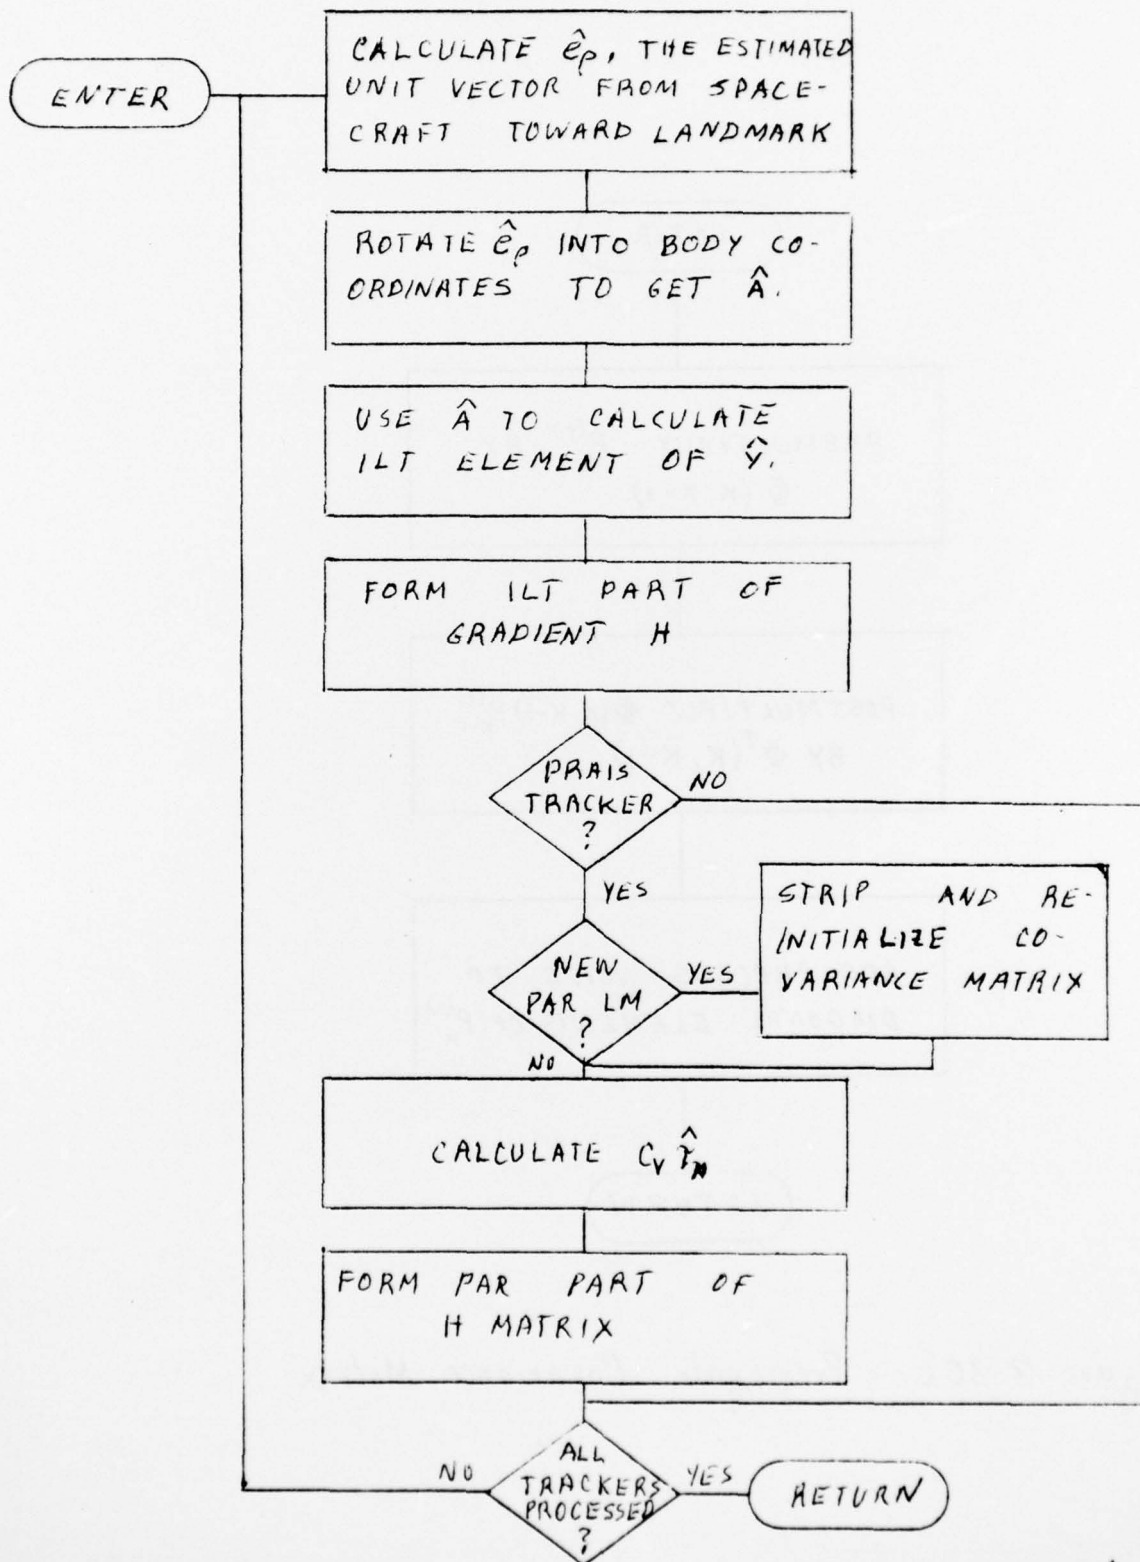 ENTER
CALCULATE ê_ρ, THE ESTIMATED
UNIT VECTOR FROM SPACE-
CRAFT TOWARD LANDMARK
ROTATE ê_ρ INTO BODY CO-
ORDINATES TO GET Â.
USE Â TO CALCULATE
ILT ELEMENT OF Ŷ.
FORM ILT PART OF
GRADIENT H
PRAIS
TRACKER
?
NO
YES
NEW
PAR LM
?
YES
NO
STRIP AND RE-
INITIALIZE CO-
VARIANCE MATRIX
CALCULATE C_V
FORM PAR PART OF
H MATRIX
ALL
TRACKERS
PROCESSED
?
NO
YES
RETURN